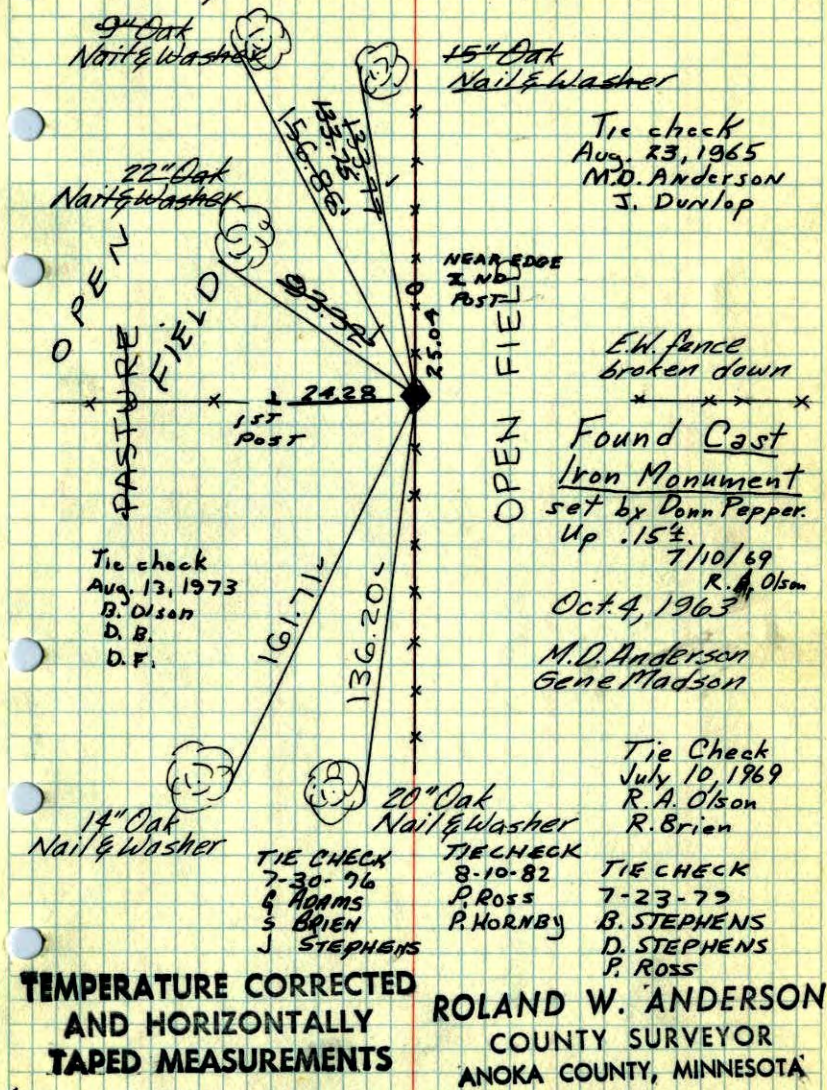 9" Oak
Nail & Washer
15" Oak
Nail & Washer
133.97
133.75
156.86
Tie check
Aug. 23, 1965
M.D. Anderson
J. Dunlop
22" Oak
Nail & Washer
93.32
OPEN
PASTURE
FIELD
NEAR EDGE
2 ND
POST
25.04
OPEN FIELD
24.28
1 ST
POST
E.W. fence
broken down
Found Cast
Iron Monument
set by Donn Pepper.
Up .15'±.
7/10/69
R.A. Olson
Oct. 4, 1963
M.D. Anderson
Gene Madson
Tie check
Aug. 13, 1973
B. Olson
D. B.
D. F.
161.71
136.20
Tie Check
July 10, 1969
R.A. Olson
R. Brien
14" Oak
Nail & Washer
20" Oak
Nail & Washer
TIE CHECK
7-30-76
G ADAMS
S BRIEN
J STEPHENS
TIE CHECK
8-10-82
P. ROSS
P. HORNBY
TIE CHECK
7-23-79
B. STEPHENS
D. STEPHENS
P. ROSS
TEMPERATURE CORRECTED
AND HORIZONTALLY
TAPED MEASUREMENTS
ROLAND W. ANDERSON
COUNTY SURVEYOR
ANOKA COUNTY, MINNESOTA